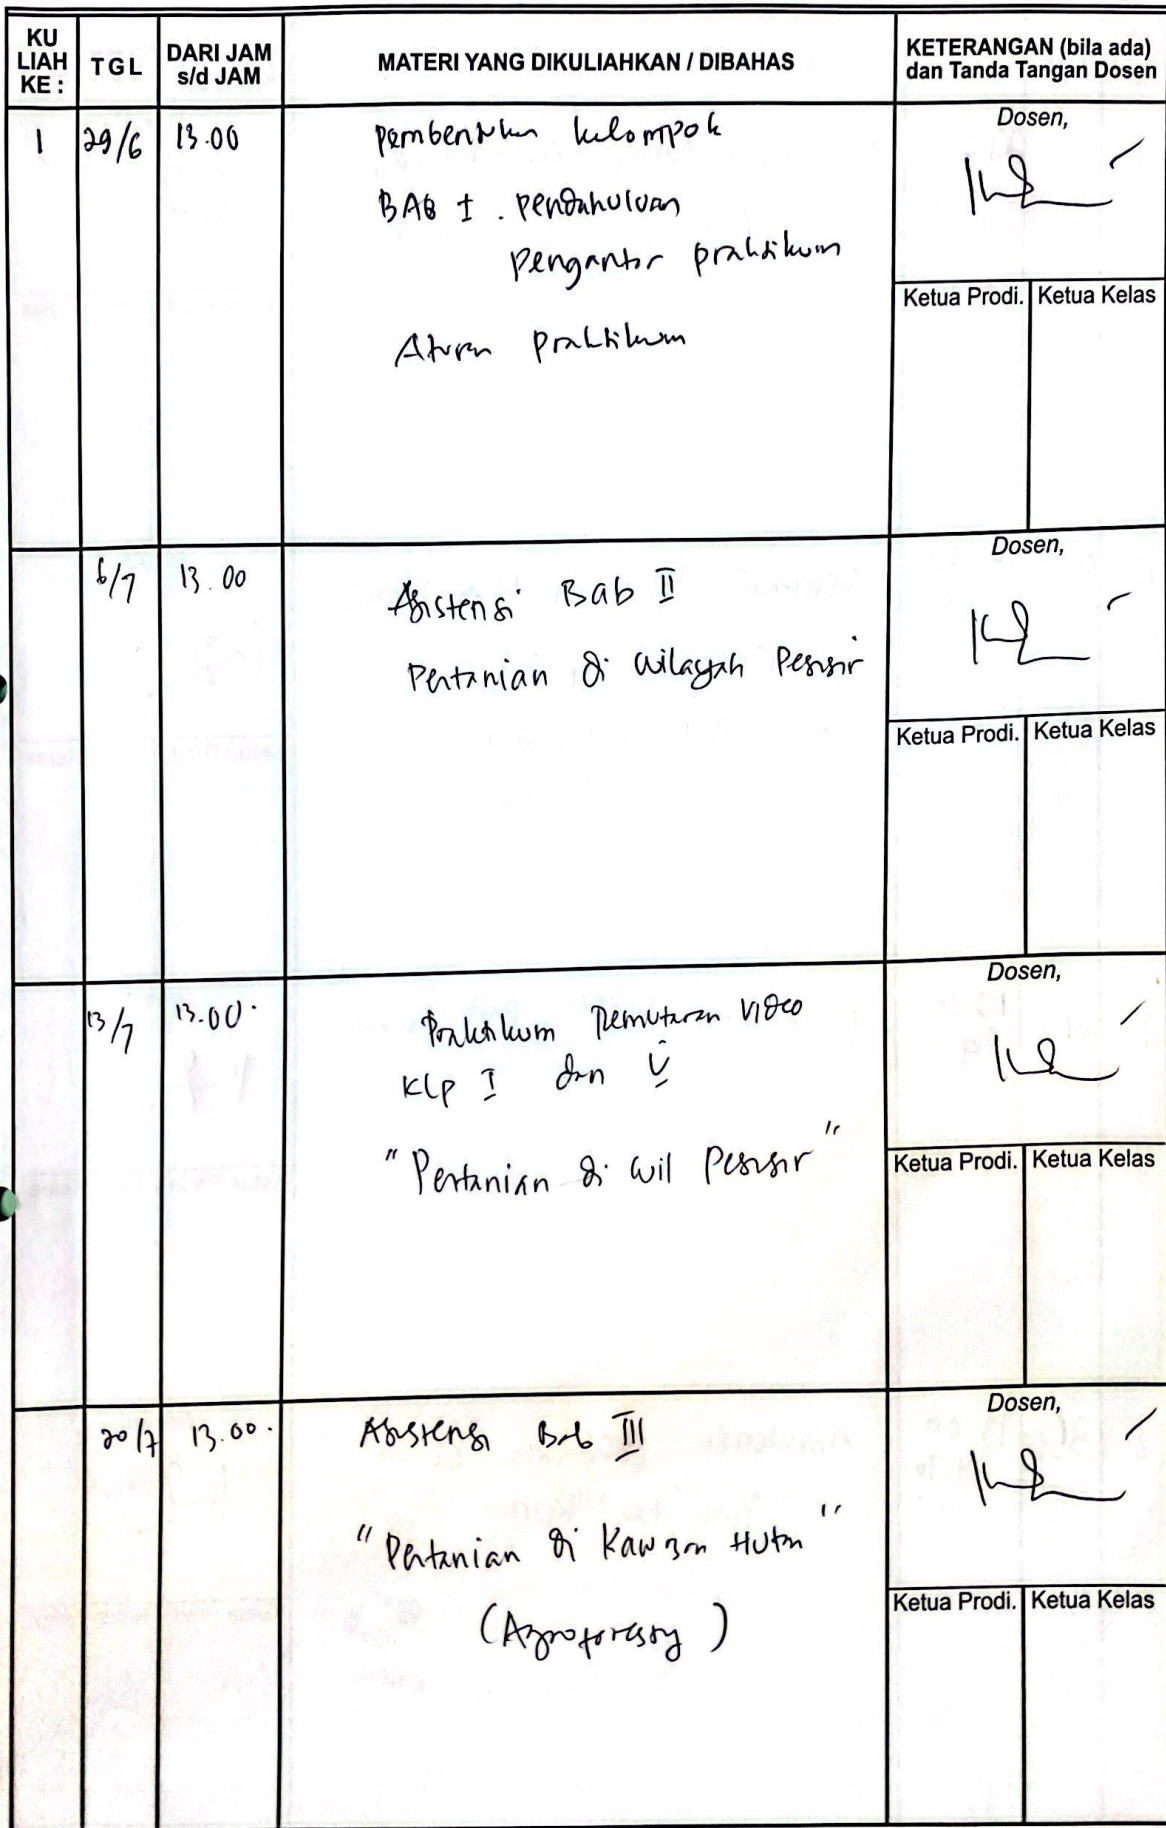 KU LIAH KE :
TGL
DARI JAM s/d JAM
MATERI YANG DIKULIAHKAN / DIBAHAS
KETERANGAN (bila ada) dan Tanda Tangan Dosen
1
29/6
13.00
Pembentukan kelompok
BAB I . Pendahuluan
Pengantar praktikum
Aturan Praktikum
Dosen,
Ketua Prodi.
Ketua Kelas
6/7
13.00
Asistensi Bab II
Pertanian di wilayah Pesisir
Dosen,
Ketua Prodi.
Ketua Kelas
13/7
13.00.
Praktikum Pemutaran Video
Klp I dan V
"Pertanian di wil Pesisir"
Dosen,
Ketua Prodi.
Ketua Kelas
20/7
13.00.
Asistensi Bab III
"Pertanian di Kawasan Hutan"
(Agroforestry)
Dosen,
Ketua Prodi.
Ketua Kelas